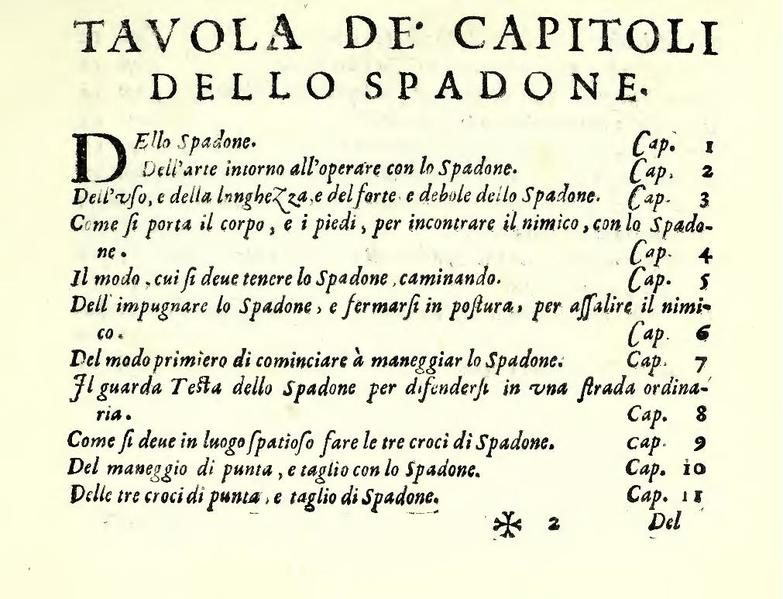 TAVOLA DE' CAPITOLI
DELLO SPADONE.
DEllo Spadone. Cap. 1
Dell'arte intorno all'operare con lo Spadone. Cap. 2
Dell'vſo, e della lnngheZza, e del forte e debole dello Spadone. Cap. 3
Come ſi porta il corpo, e i piedi, per incontrare il nimico, con lo Spado-
ne. Cap. 4
Il modo, cui ſi deue tenere lo Spadone, caminando. Cap. 5
Dell' impugnare lo Spadone, e fermarſi in poſtura, per aſſalire il nimi-
co. Cap. 6
Del modo primiero di cominciare à maneggiar lo Spadone. Cap. 7
Il guarda Teſta dello Spadone per difenderſi in vna ſtrada ordina-
ria. Cap. 8
Come ſi deue in luogo ſpatioſo fare le tre croci di Spadone. Cap. 9
Del maneggio di punta, e taglio con lo Spadone. Cap. 10
Delle tre croci di punta, e taglio di Spadone. Cap. 11
✠ 2 Del